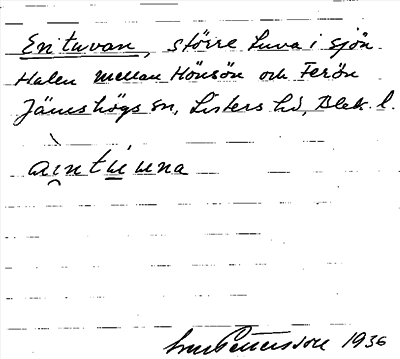 Entuvan, större tuva i sjön
Halen mellan Hönsön och Ferön
Jämshögs sn, Listers hd, Blek. l.
Pettersson 1936